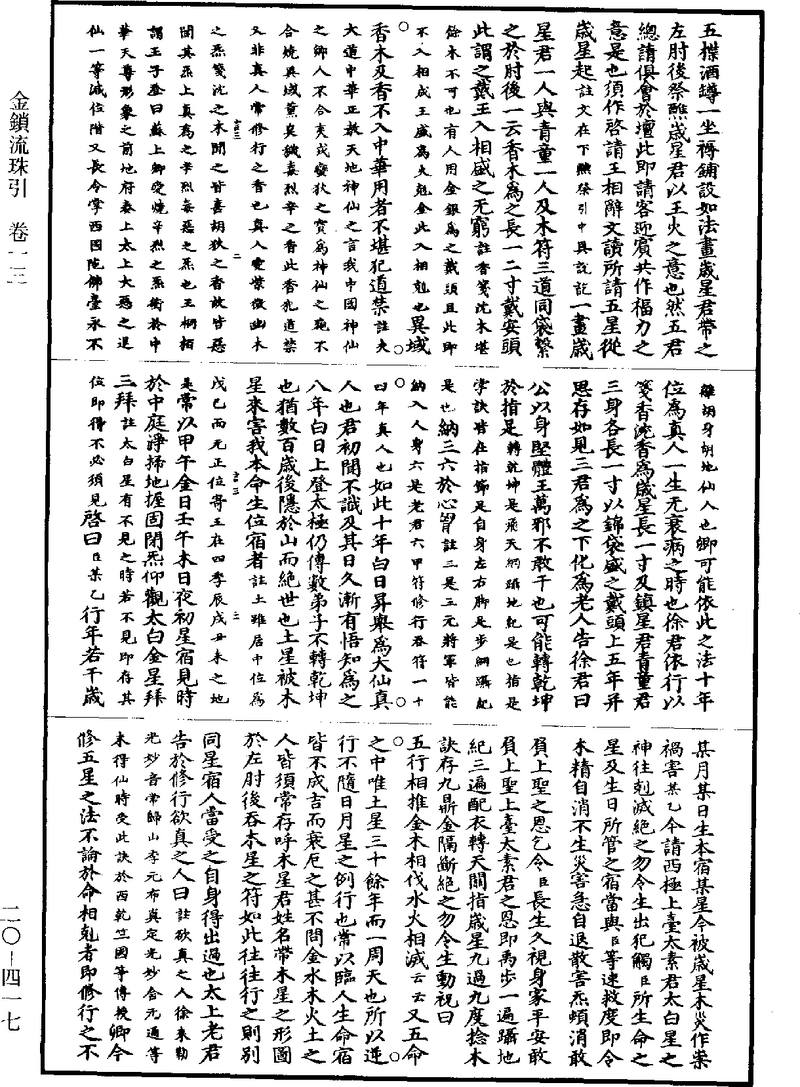 金鎖流珠引　卷一三
二〇—四一七
五楪酒罇一坐褥鋪設如法畫歲星君帶之
左肘後祭醮歲星君以王火之意也然五君
總請俱會於壇此即請客迎賓共作福力之
意是也須作啓請王相辭文讀所請五星從
歲星起註文在下醮祭引中具說訖一畫歲
星君一人與青童一人及木符三道同袋繫
之於肘後一云香木為之長一二寸戴安頭
此謂之戴王入相盛之无窮註香箋沈木堪
餘木不可也有人用金銀為之戴頭且此即
不入相成王盛為火剋金此入相剋也異域
香木及香不入中華用者不堪犯道禁註夫
大道中華正教天地神仙之言我中國神仙
之鄉人不合夷戎蠻狄之寶為神仙之苑不
合燒異域薰臭穢毒烈辛之香此香先道禁
又非真人常修行之香也真人愛柴微幽木
之炁箋沈之木聞之皆喜胡狄之香故皆惡
聞其炁上真為之辛烈每惡之炁也王桐栢
謂王子登曰蘇上卿受燒辛烈之炁衝於中
華天尊形象之前地府奏上太上大惡之退
仙一等減位階又長令掌西國陁佛臺永不
離胡身胡地仙人也卿可能依此之法十年
位為真人一生无衰病之時也徐君依行以
箋香沈香為歲星長一寸及鎮星君青童君
三身各長一寸以錦袋盛之戴頭上五年并
思存如見三君為之下化為老人告徐君曰
公以身堅體王萬邪不敢干也可能轉乾坤
於指足轉乾坤是飛天綱躡地紀是也指是
掌訣皆在指節足自身左右脚是步綱躡紀
是也納三六於心胷註三是三元將軍皆能
納入人身六是老君六甲符修行吞符一十
四年真人也如此十年白日昇舉為大仙真
人也君初聞不識及其日久漸有悟知為之
八年白日上登太極仍傳數弟子不轉乾坤
也猶數百歲後隱於山而絕世也土星被木
星來害我本命生位宿者註土雖居中位為
戊己而无正位寄王在四季辰戌丑未之地
是常以甲午金日壬午木日夜初星宿見時
於中庭淨掃地握固閉炁仰觀太白金星拜
三拜註太白星有不見之時若不見即存其
位即得不必須見啓曰臣某乙行年若干歲
某月某日生本宿某星今被歲星木災作祟
禍害某乙今請西極上臺太素君太白星之
神往剋滅絕之勿令生出犯觸臣所生命之
星及生日所管之宿當與臣等速救度即令
木精自消不生災害急自退散害炁頓消敢
負上聖之恩乞令臣長生久視身家平安敢
負上聖上臺太素君之恩即禹步一遍躡地
紀三遍配衣轉天關指歲星九過九度捻木
訣存九鼎金隔斷絕之勿令生動視曰
五行相推金木相伐水火相滅云云又五命
之中唯土星三十餘年而一周天也所以逆
行不隨日月星之例行也常以臨人生命宿
皆不成吉而衰厄之甚不問金水木火土之
人皆須常存呼木星君姓名帶木星之形圖
於左肘後吞木星之符如此往往行之則別
同星宿人當受之自身得出過也太上老君
告於修行欲真之人曰註欲真之人徐來勒
光妙音常歸山李元布真定光妙合元通等
未得仙時受此訣於西乾竺國等傳授卿今
修五星之法不論於命相剋者即修行之不